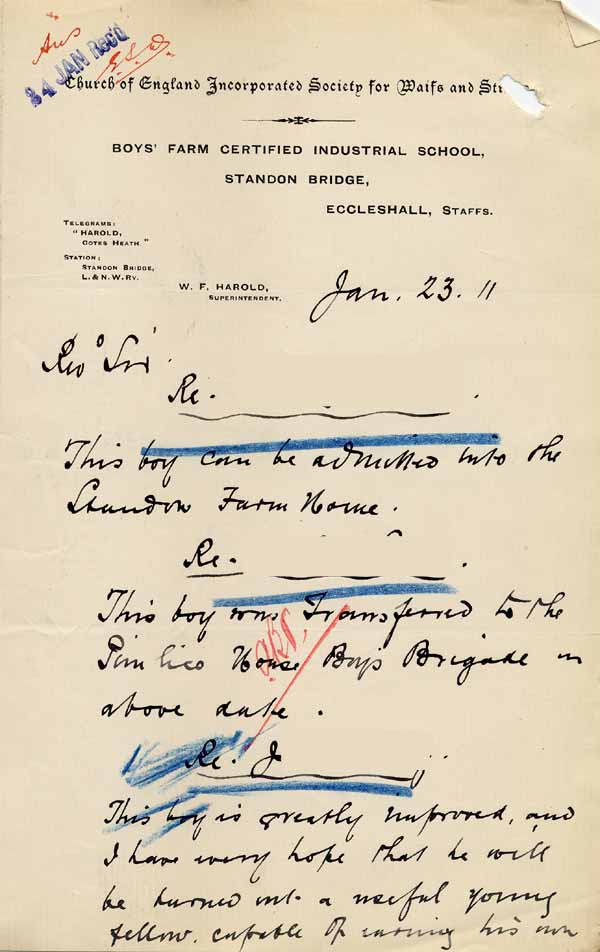 Ans
24 JAN Recd
Church of England Incorporated Society for Waifs and Str
BOYS' FARM CERTIFIED INDUSTRIAL SCHOOL,
STANDON BRIDGE,
ECCLESHALL, STAFFS.
TELEGRAMS:
"HAROLD,
COTES HEATH."
STATION:
STANDON BRIDGE,
L. & N.W. RY.
W. F. HAROLD,
SUPERINTENDENT.
Jan. 23. 11
Revd Sir
Re.
This boy can be admitted into the
Standon Farm Home.
Re.
This boy was Transferred to the
Pimlico House Boys Brigade on
above date.
Re. J
This boy is greatly improved, and
I have every hope that he will
be turned out a useful young
fellow, capable of earning his own